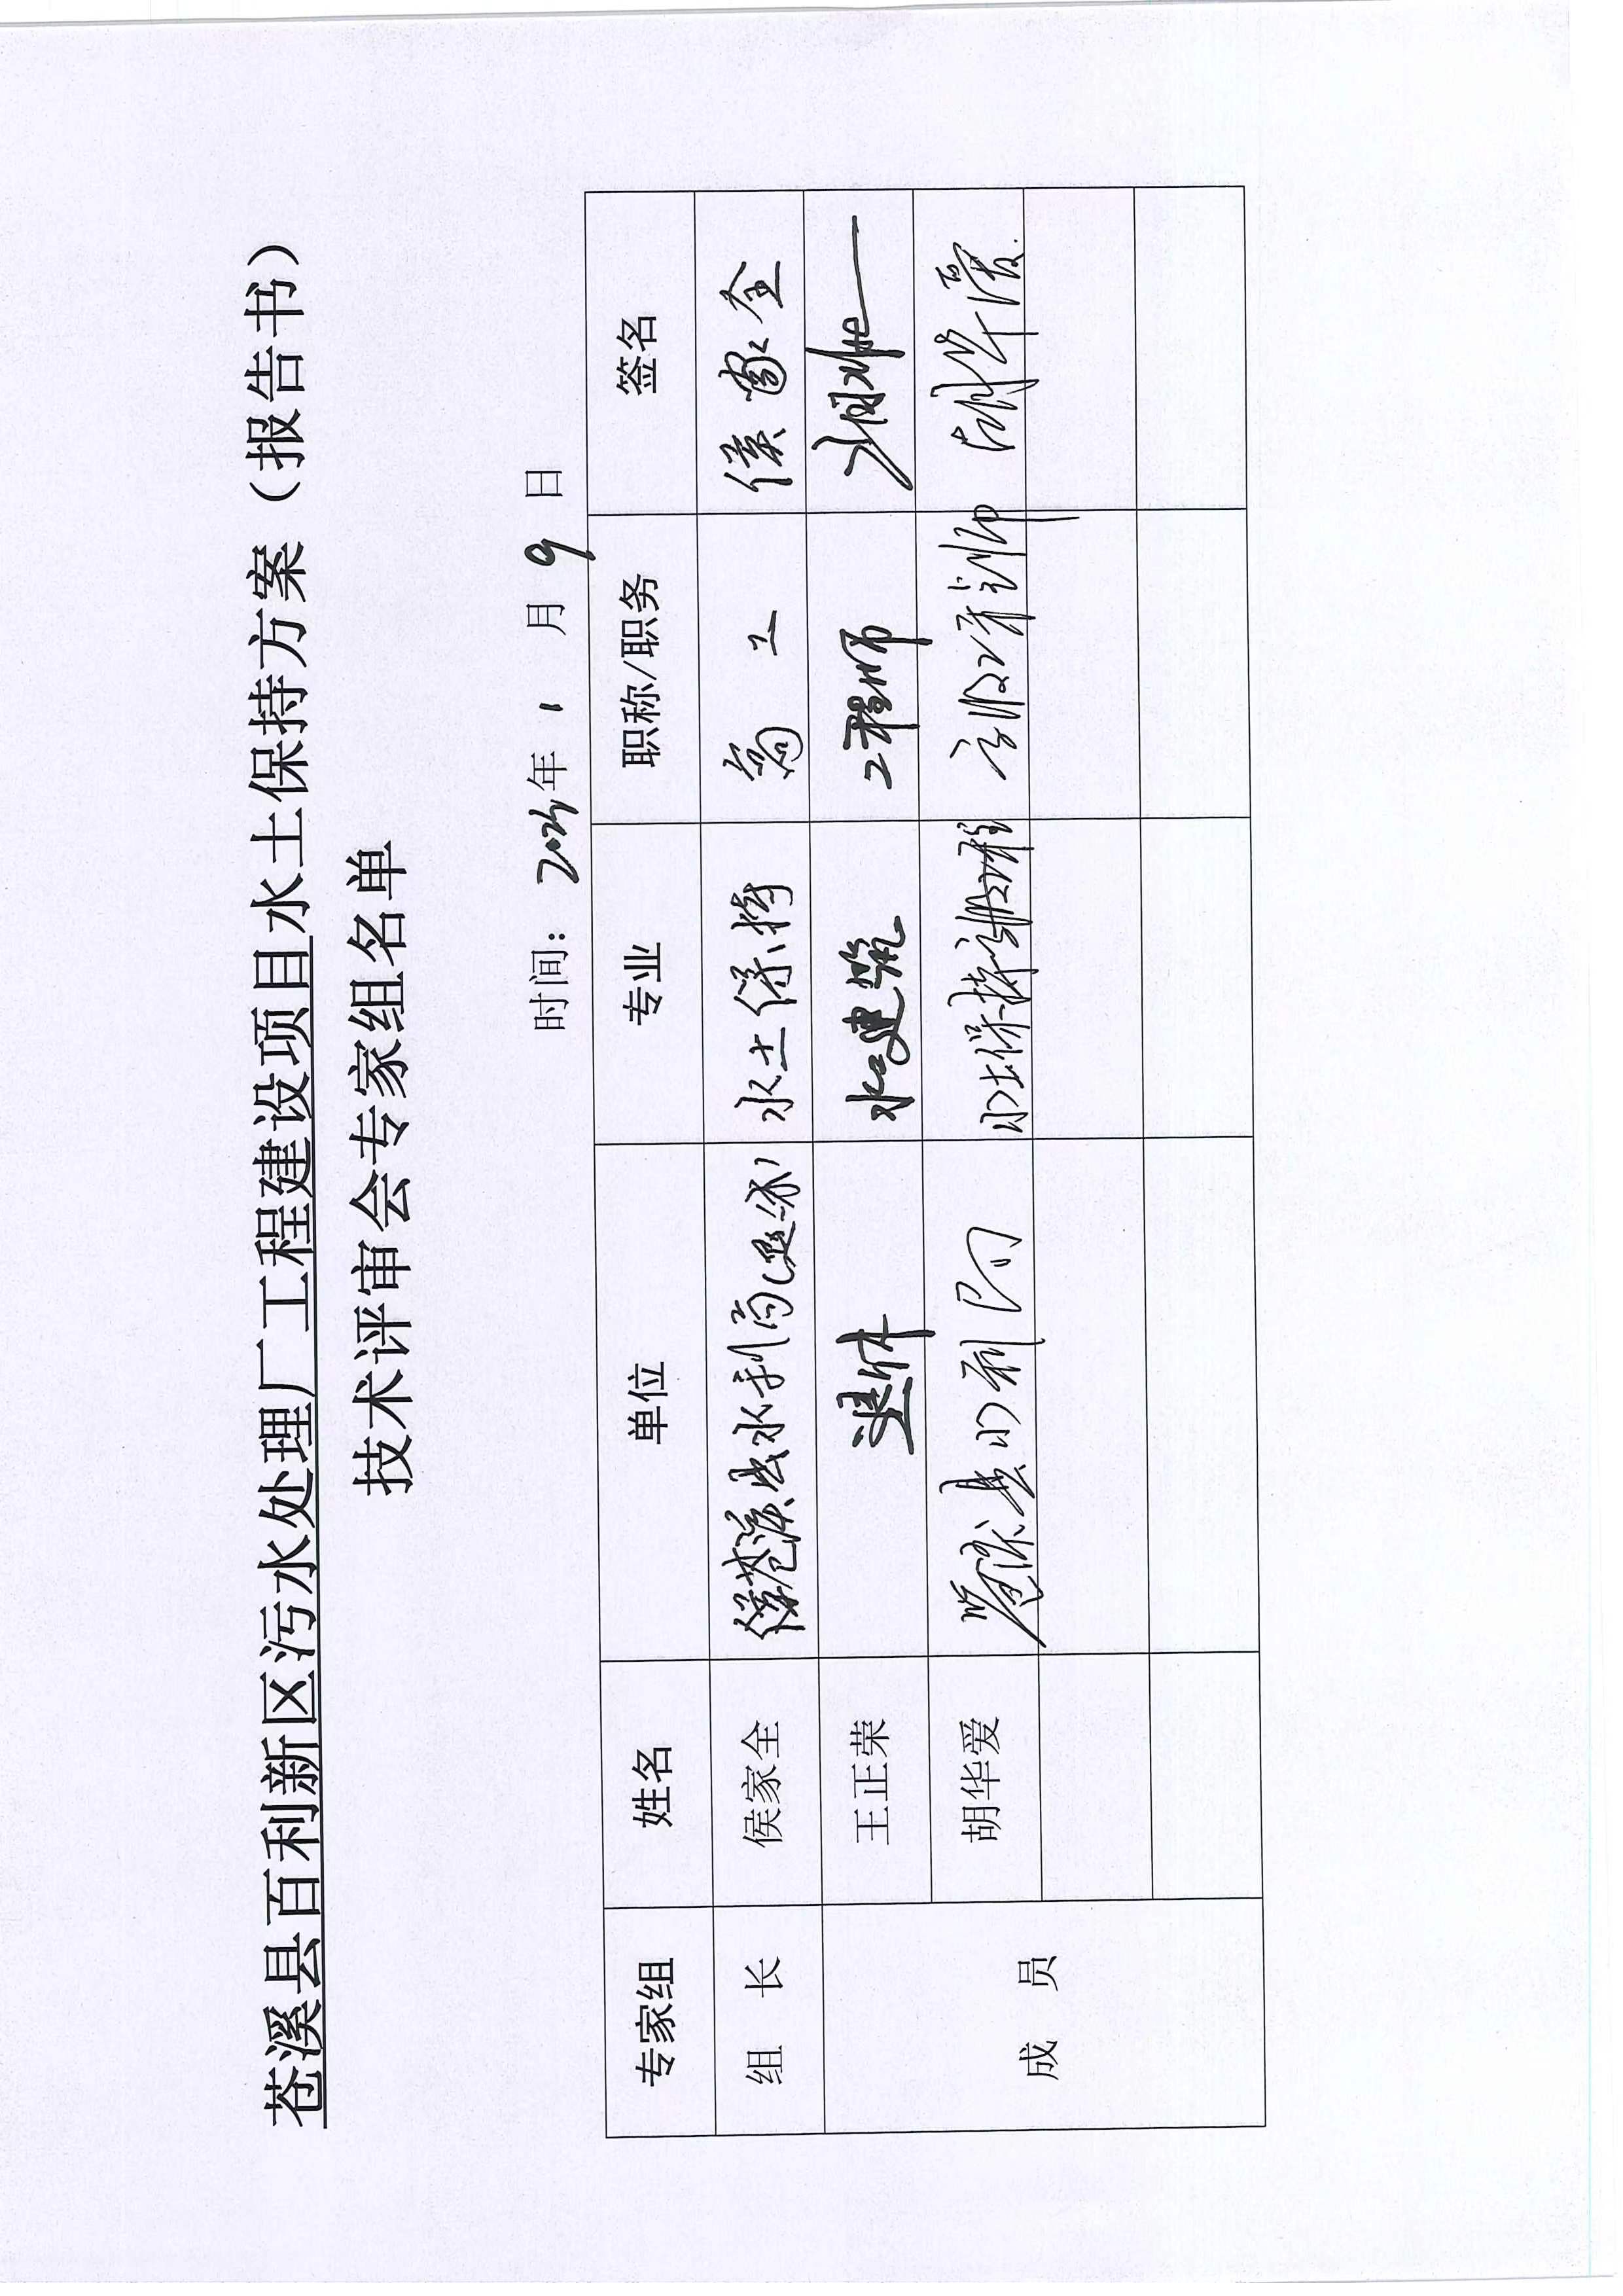 苍溪县百利新区污水处理厂工程建设项目水土保持方案（报告书）
技术评审会专家组名单
时间： 年 1 月 9 日
专家组 姓名 单位 专业 职称/职务 签名
组 长 侯家全 苍溪县水利局(退休) 水土保持 高工 侯家全
成 员 王正荣 退休 水工建筑 工程师
胡华爱 苍溪县水利局 水土保持 工程师 胡华爱